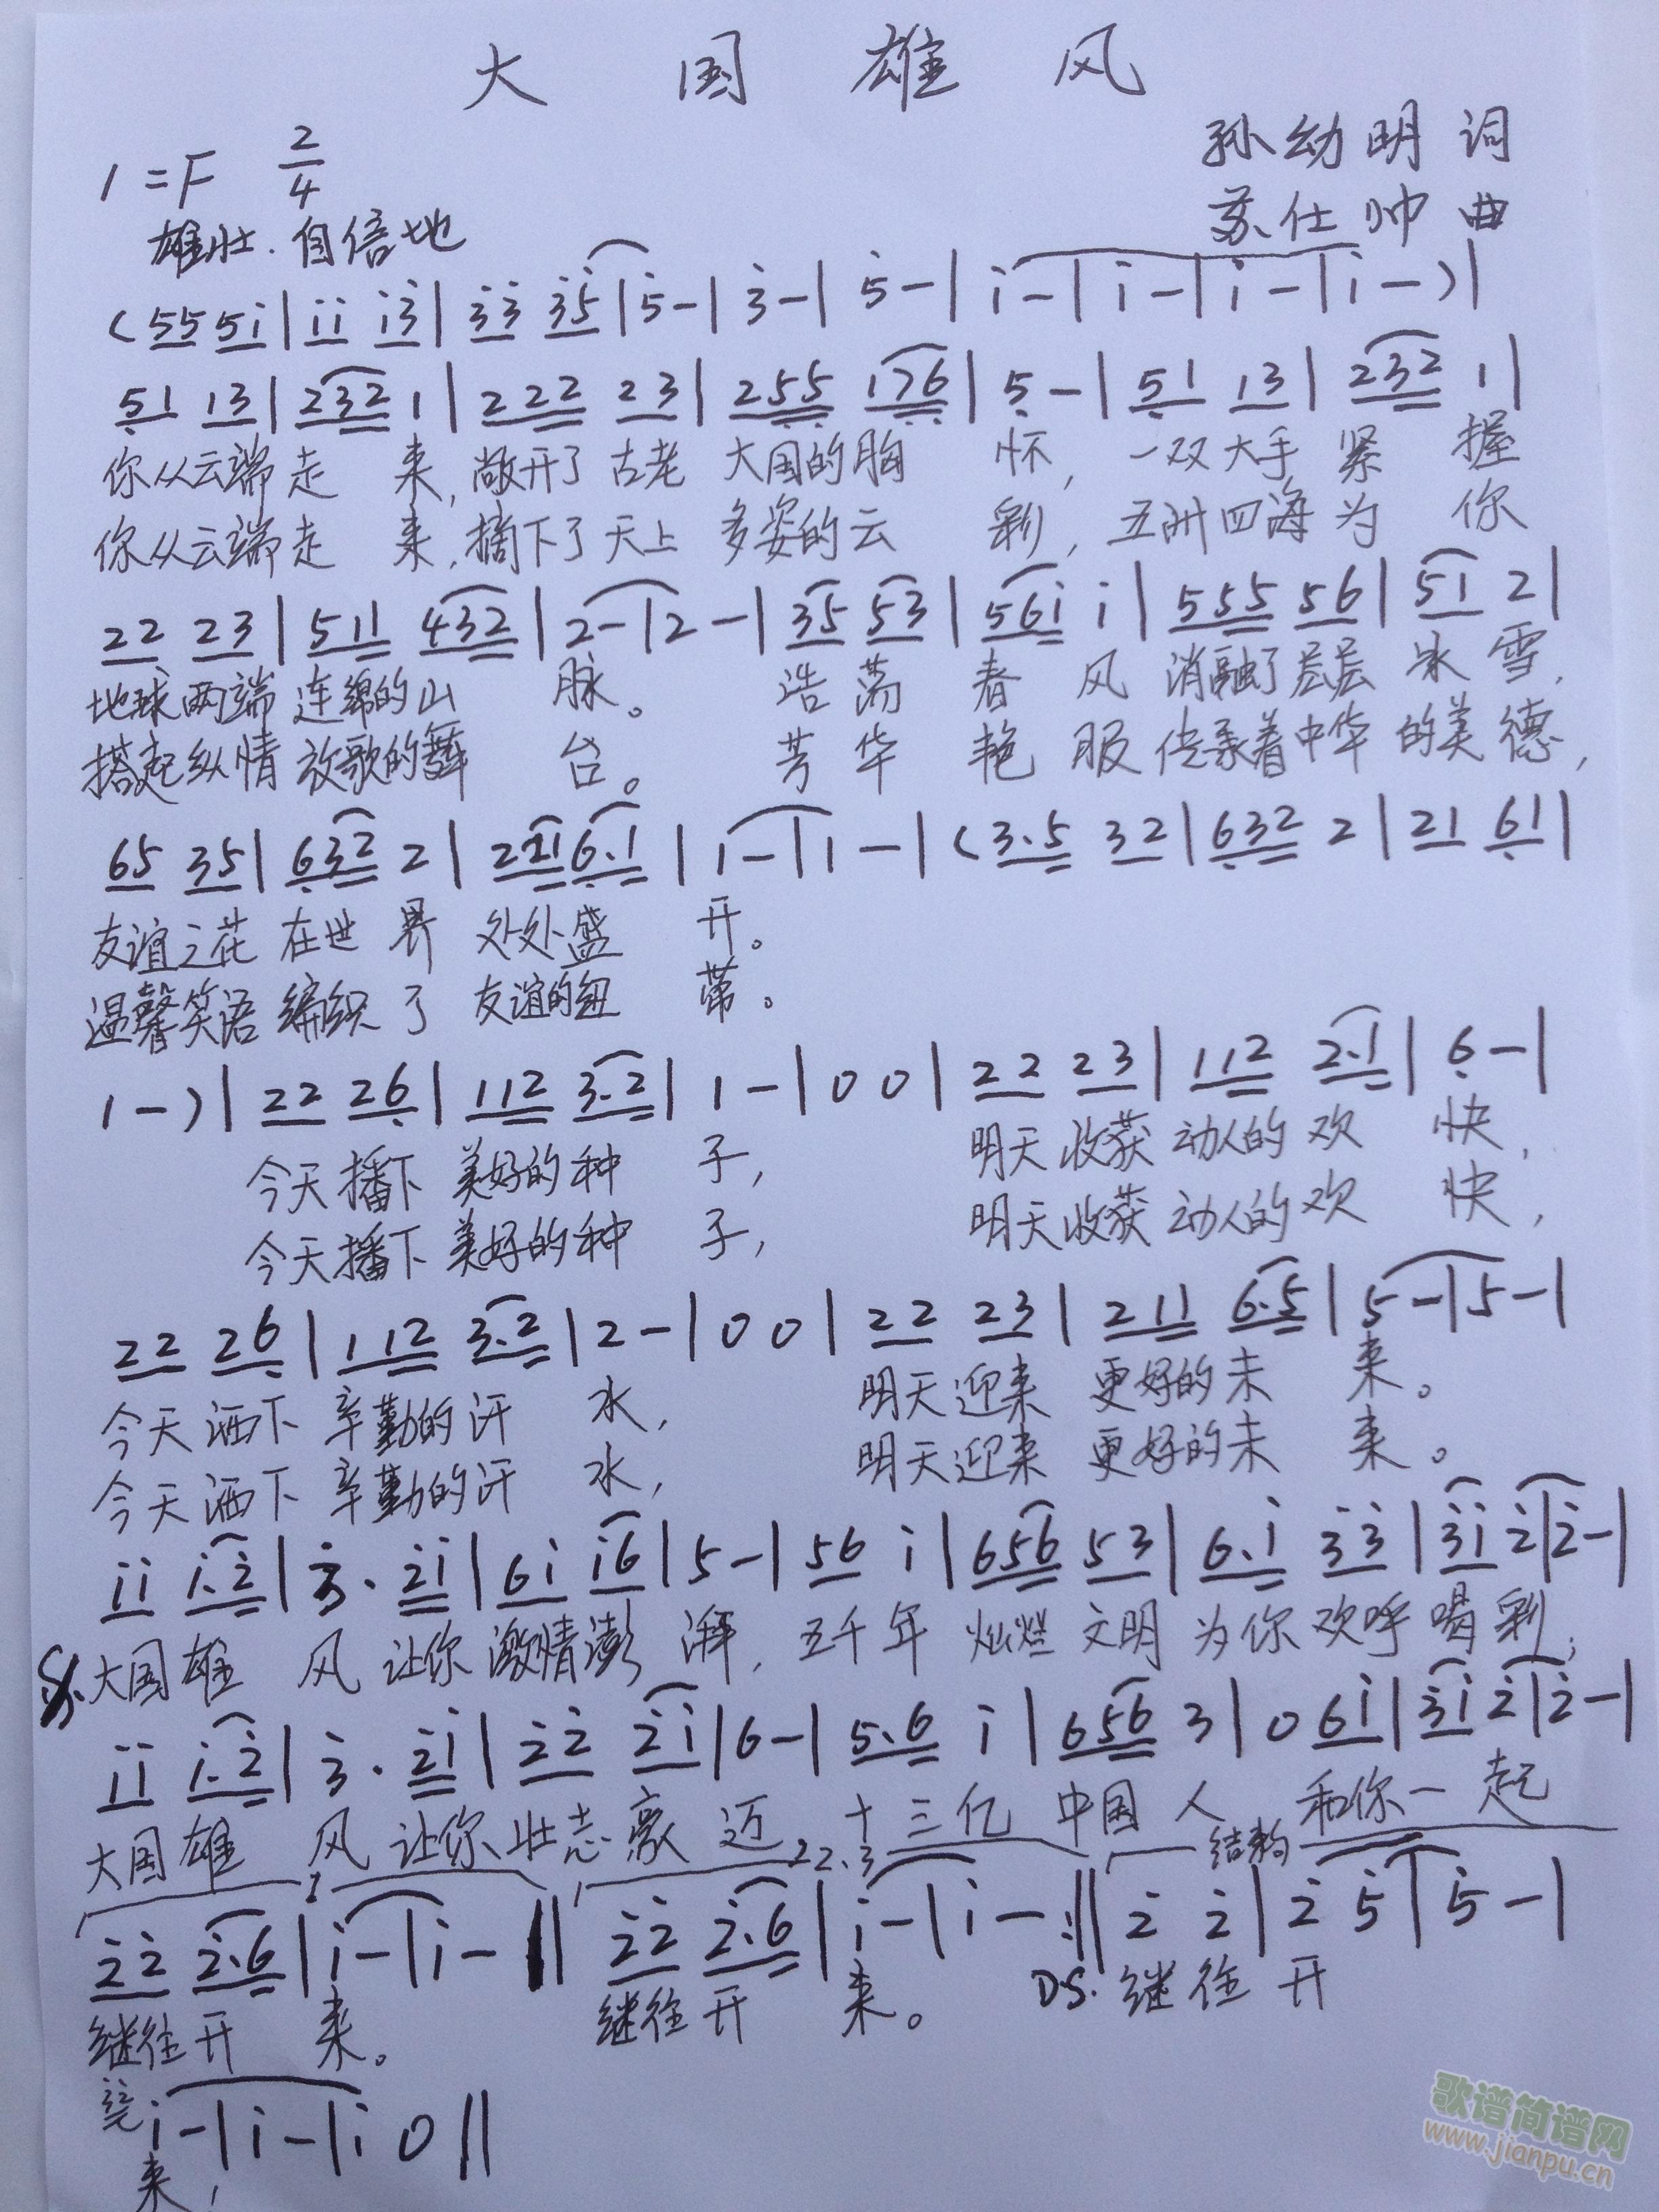 大国雄风
1=F 2/4
孙幼明 词
雄壮.自信地
苏仕帅 曲
(55 5i|ii i3̇|3̇3̇ 3̇5̇|5̇-|3̇-|5̇-|i-|i-|i-|i-)|
5̣1 13|232 1|222 23|25̣5̣ 17̣6̣|5̣-|5̣1 13|232 1|
你从云端走 来,敞开了古老 大国的胸 怀,一双大手紧 握
你从云端走 来,摘下了天上 多姿的云 彩,五洲四海为 你
22 23|511 432|2-|2-|35 53|56i i|555 56|51 2|
地球两端 连绵的山 脉。 浩荡 春 风 消融了层层 冰雪,
搭起纵情 放歌的舞 台。 芳华 艳 服 传承着中华 的美德,
65 35|6̣32 2|211 6̣.1|1-|1-|(3.5 32|6̣32 2|21 6̣1|
友谊之花 在世界 处处盛 开。
温馨笑语 编织了 友谊的纽 带。
1-)|22 26̣|112 3.2|1-|00|22 23|112 2.1|6̣-|
今天播下 美好的种 子, 明天收获 动人的欢 快,
今天播下 美好的种 子, 明天收获 动人的欢 快,
22 26̣|112 3.2|2-|00|22 23|211 6.5|5-|5-|
今天洒下 辛勤的汗 水, 明天迎来 更好的未 来。
今天洒下 辛勤的汗 水, 明天迎来 更好的未 来。
ii i.2̇|3̇. 2̇i|6i i6|5-|56 i|656 53|6.i 3̇3̇|3̇i 2̇|2̇-|
大国雄 风 让你激情澎 湃,五千年 灿烂文明 为你欢呼喝彩;
ii i.2̇|3̇. 2̇i|2̇2̇ 2̇i|6-|5.6 i|656 3|0 6i|3̇i 2̇|2̇-|
大国雄 风 让你壮志豪 迈,十三亿 中国人 和你一起
1 2.3 结构
2̇2̇ 2̇.6|i-|i-‖2̇2̇ 2̇.6|i-|i-:‖2̇ 2̇|2̇ 5̇|5̇-|
继往开 来。 继往开 来。 DS. 继往开
i-|i-|i 0‖
来!
歌谱简谱网
www.jianpu.cn